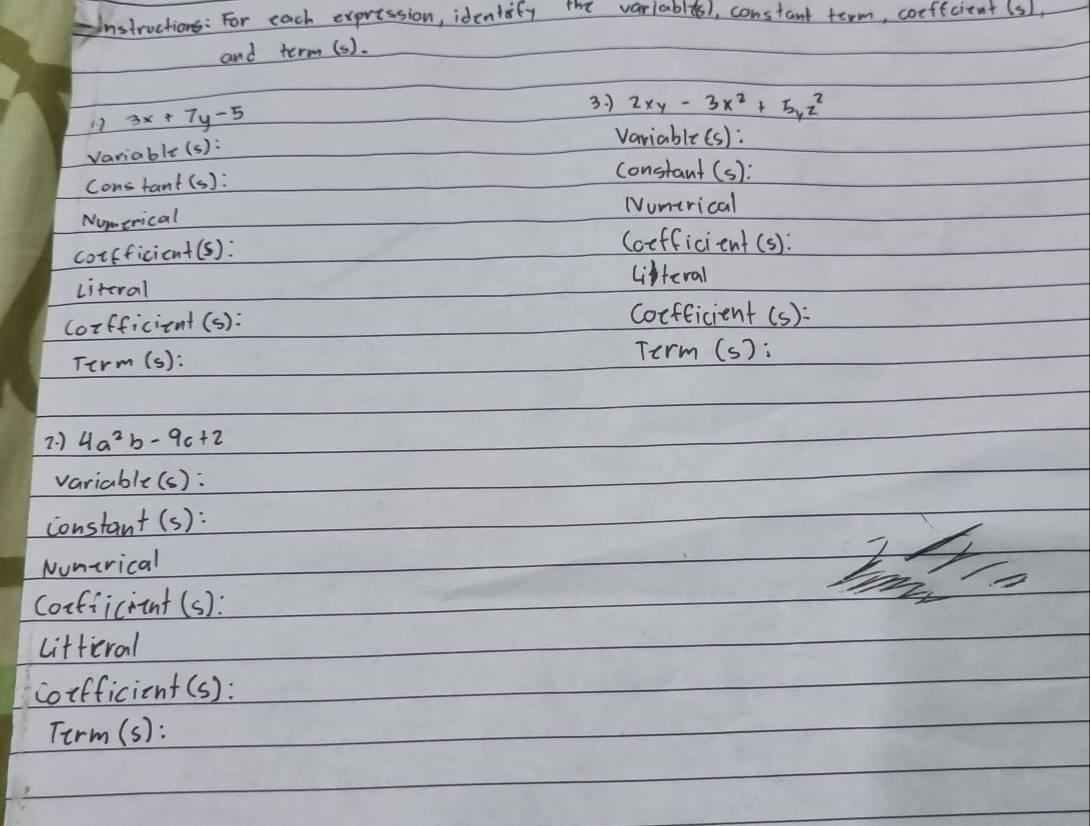 Instructions: For each expression, identify the variable(s), constant term, coeffcient (s),
and term (s).
1.) 3x + 7y - 5
Variable (s):
Constant (s):
Numerical
coefficient (s):
Literal
Coefficient (s):
Term (s):
2.) 4a²b - 9c + 2
variable (s):
constant (s):
Numerical
Coefficient (s):
Litteral
coefficient (s):
Term (s):
3.) 2xy - 3x² + 5yz²
Variable (s):
Constant (s):
Numerical
Coefficient (s):
Literal
Coefficient (s):
Term (s):